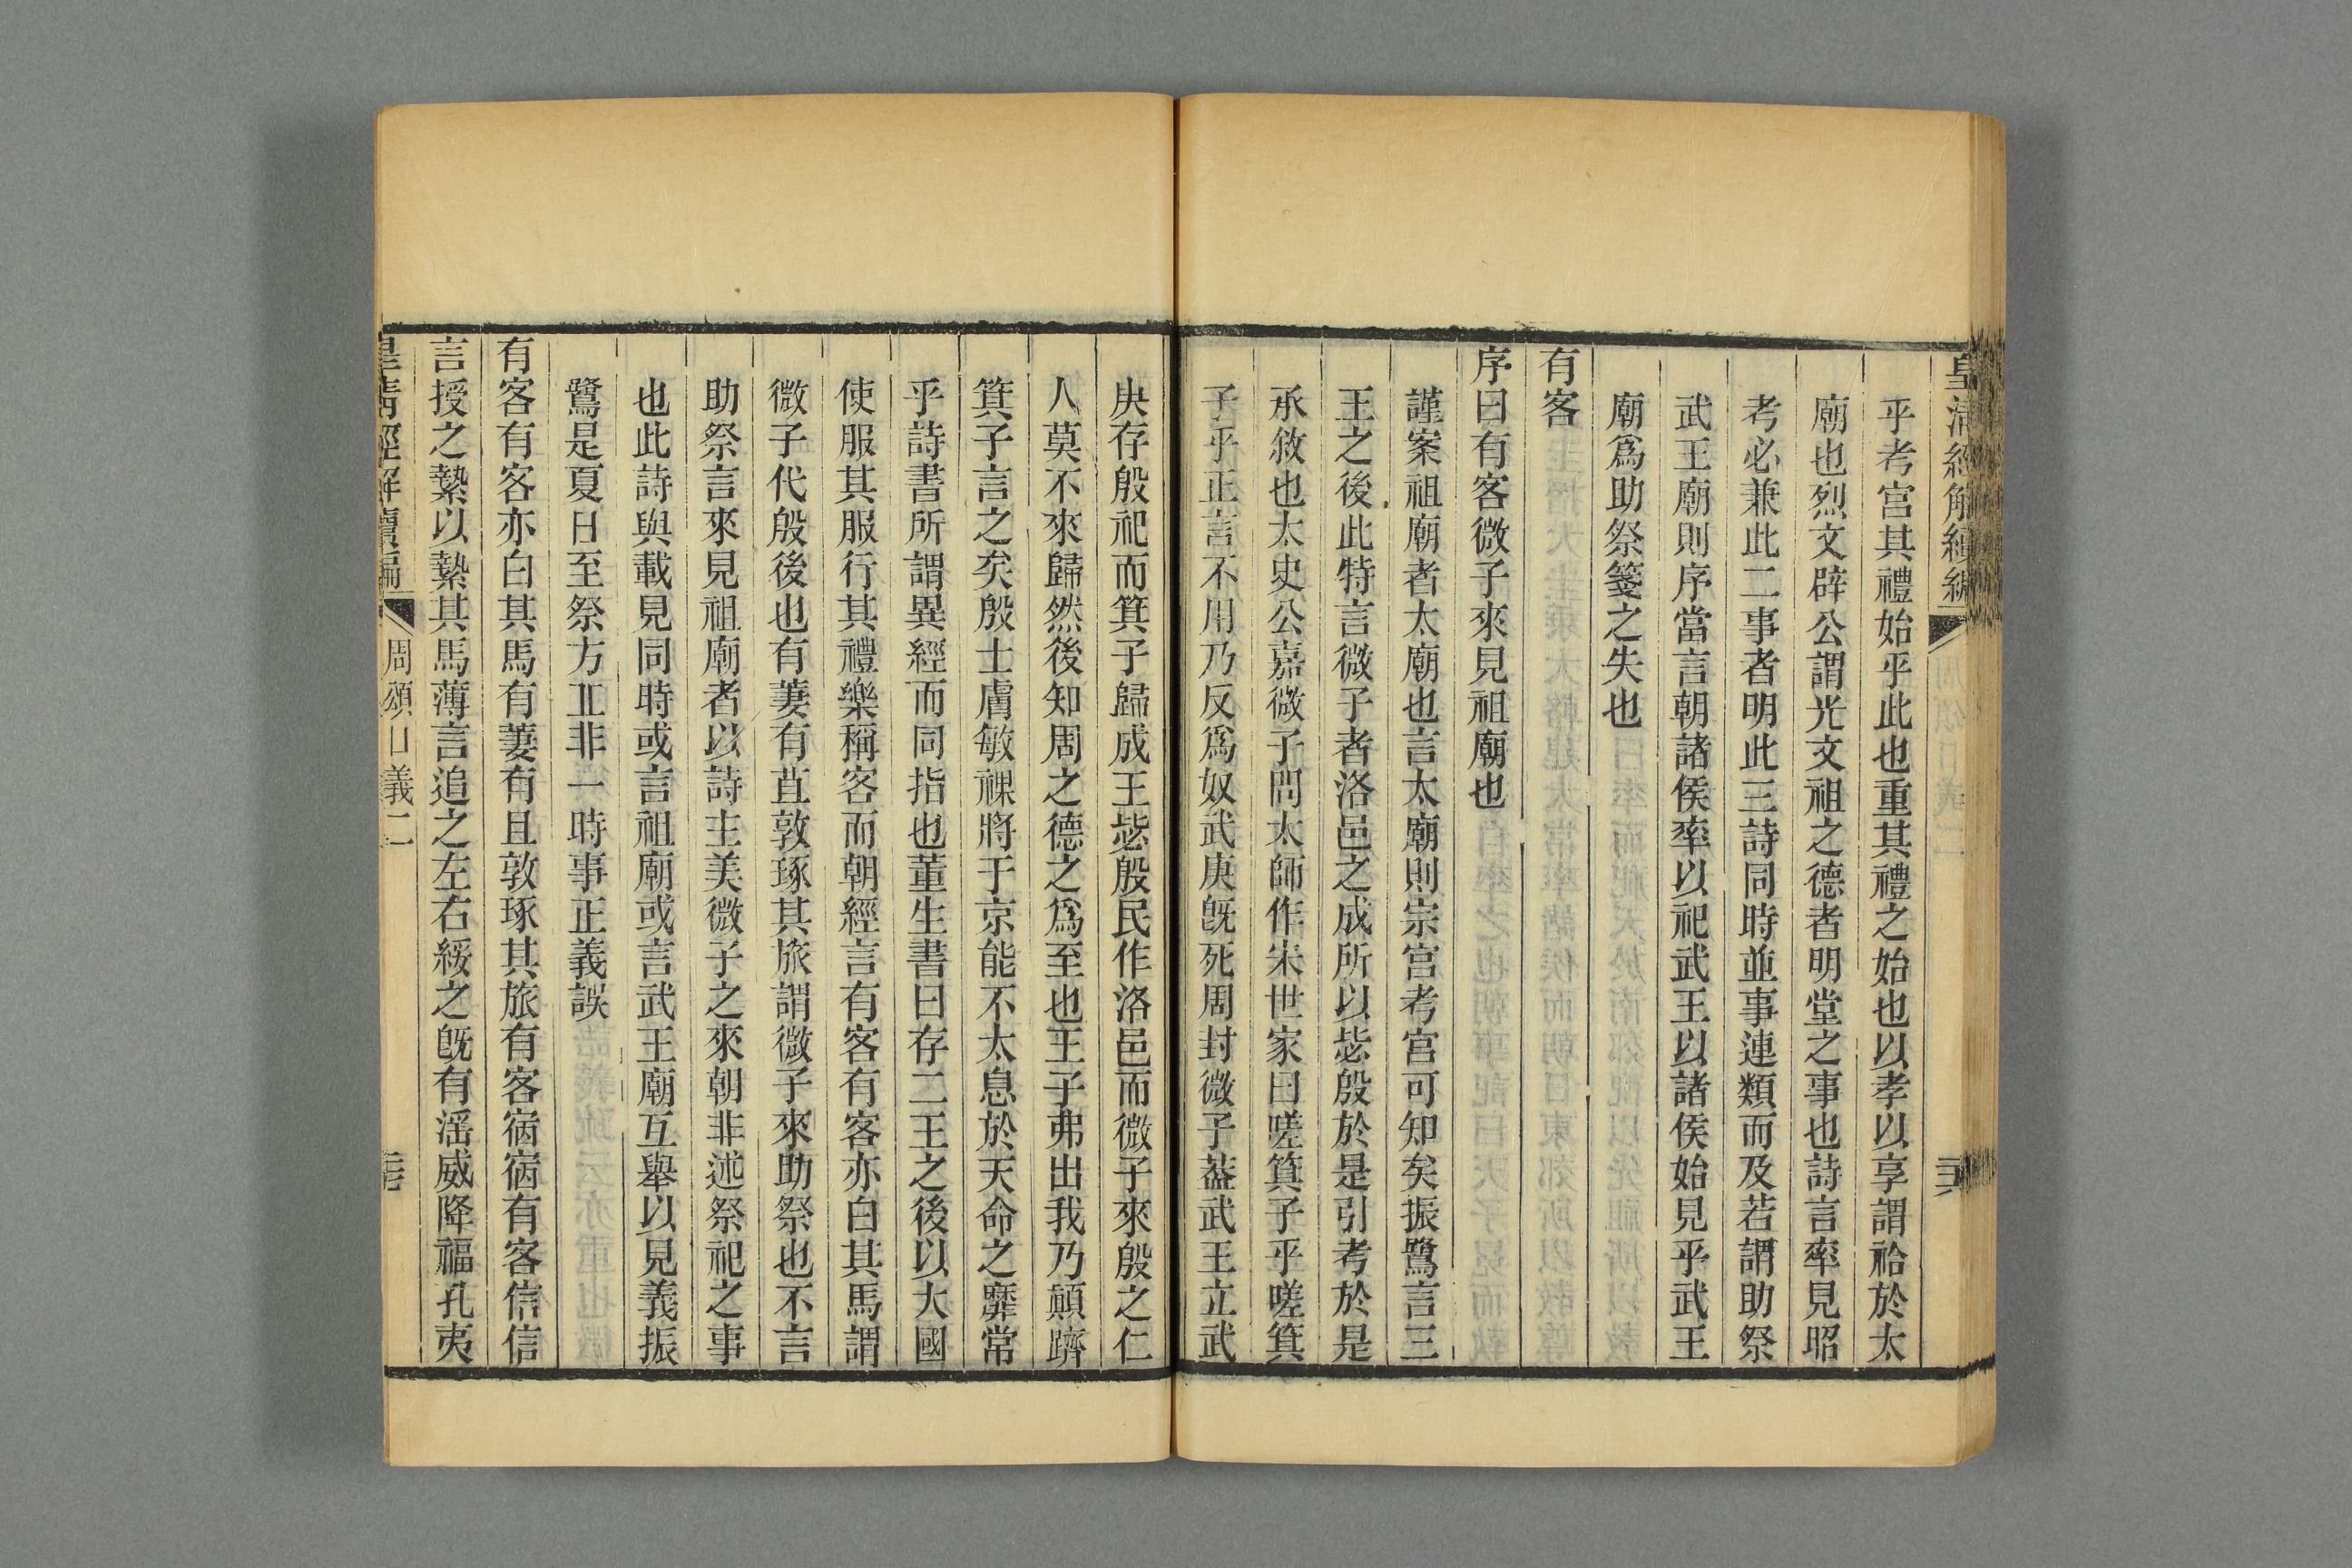 皇清經解續編
乎考宫其禮始乎此也重其禮之始也以孝以享謂祫於太
廟也烈文辟公謂光文祖之德者明堂之事也詩言率見昭
考必兼此二事者明此三詩同時並事連類而及若謂助祭
武王廟則序當言朝諸侯率以祀武王以諸侯始見乎武王
廟爲助祭箋之失也
有客
序曰有客微子來見祖廟也
謹案祖廟者太廟也言太廟則宗宫考宫可知矣振鷺言三
王之後此特言微子者洛邑之成所以毖殷於是引考於是
承敘也太史公嘉微子問太師作宋世家曰嗟箕子乎嗟箕
子乎正言不用乃反爲奴武庚旣死周封微子葢武王立武
庚存殷祀而箕子歸成王毖殷民作洛邑而微子來殷之仁
人莫不來歸然後知周之德之爲至也王子弗出我乃顚隮
箕子言之矣殷士膚敏祼將于京能不太息於天命之靡常
乎詩書所謂異經而同指也董生書曰存二王之後以大國
使服其服行其禮樂稱客而朝經言有客有客亦白其馬謂
微子代殷後也有萋有苴敦琢其旅謂微子來助祭也不言
助祭言來見祖廟者以詩主美微子之來朝非述祭祀之事
也此詩與載見同時或言祖廟或言武王廟互舉以見義振
鷺是夏日至祭方丘非一時事正義誤
有客有客亦白其馬有萋有且敦琢其旅有客宿宿有客信信
言授之縶以縶其馬薄言追之左右綏之旣有淫威降福孔夷
皇清經解續編 周頌口義二